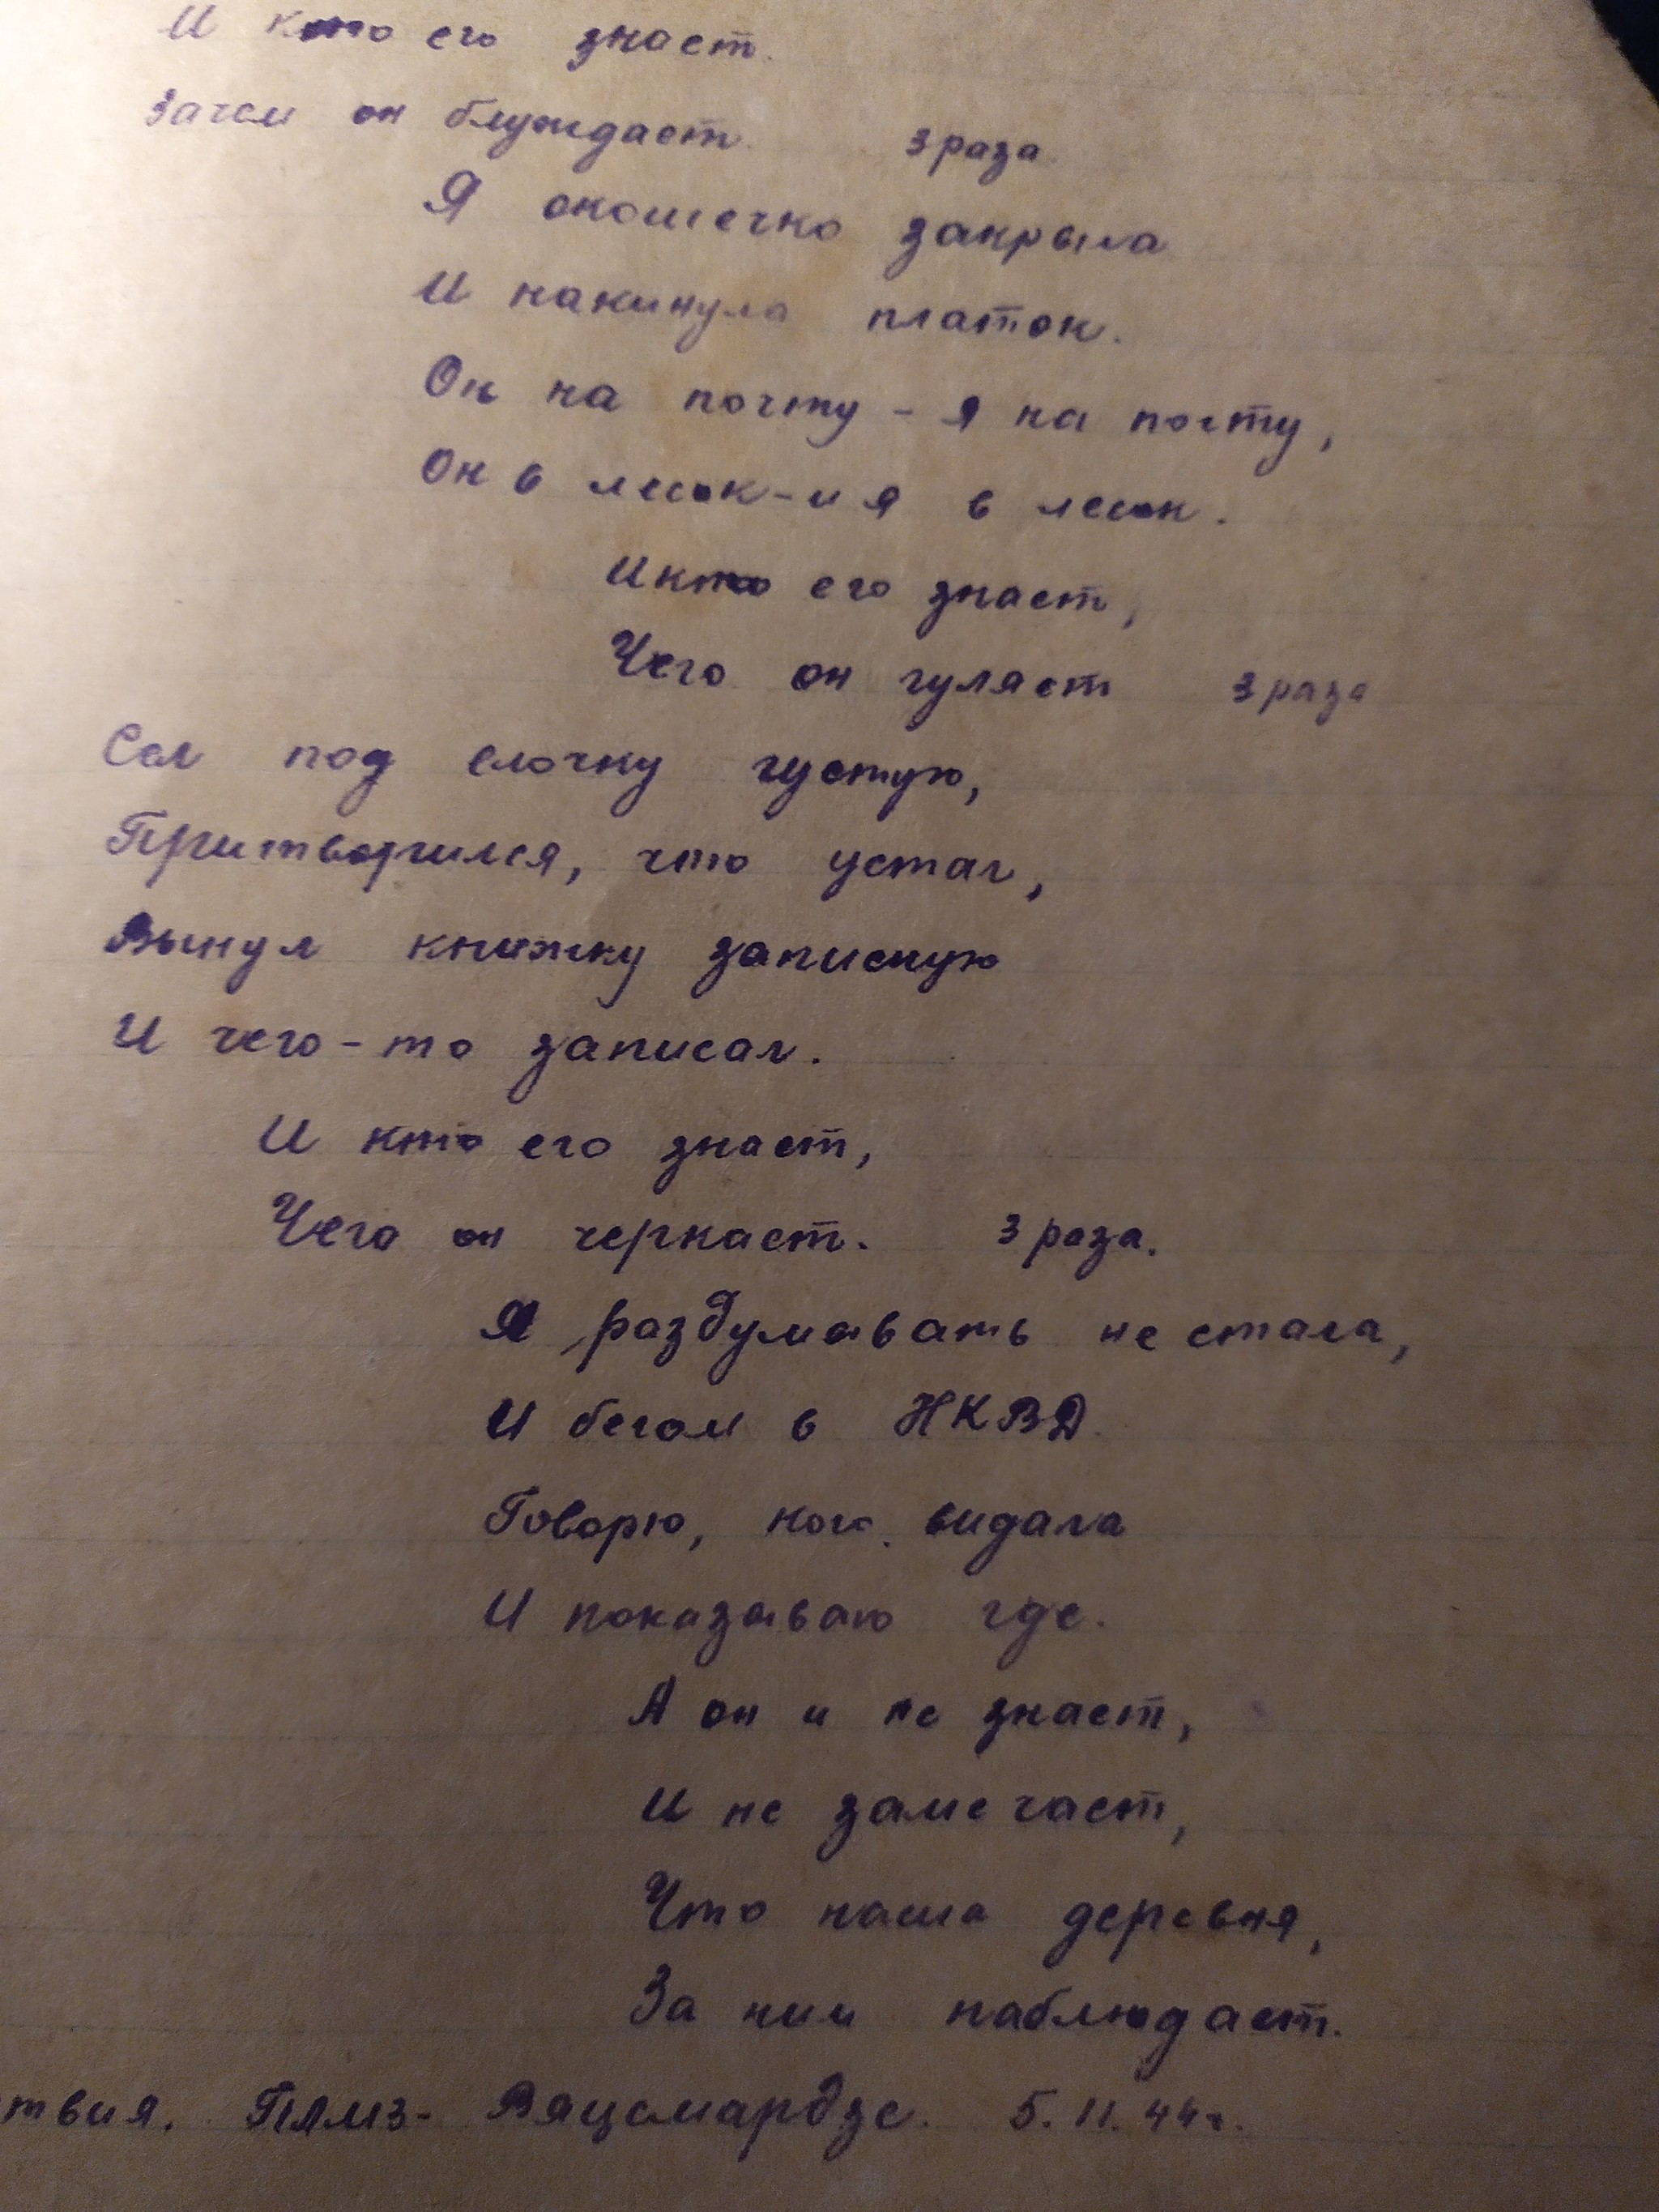 И кто его знает.
Зачем он блуждает. 3 раза
Я окошечко закрыла
И накинула платок.
Он на почту - я на почту,
Он в лесок - и я в лесок.
И кто его знает,
Чего он гуляет 3 раза
Сел под елочку густую,
Притворился, что устал,
Вынул книжку записную
И чего-то записал.
И кто его знает,
Чего он черкает. 3 раза.
Я раздумавать не стала,
И бегом в НКВД.
Говорю, кого видала
И показаваю где.
А он и не знает,
И не замечает,
Что наша деревня,
За ним наблюдает.
ствия. Вяцемардзе. 5.11.44г.